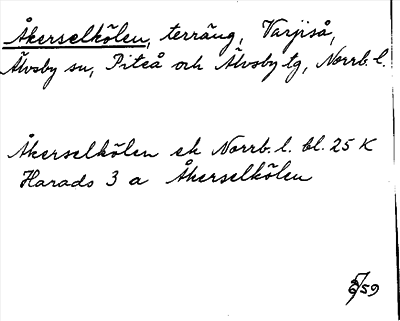 Åkerselkölen, terräng, Varjiså,
Älvsby sn, Piteå och Älvsby tg, Norrb. l.
Åkerselkölen ek Norrb. l. bl. 25 K
Harads 3 a Åkerselkölen
/59